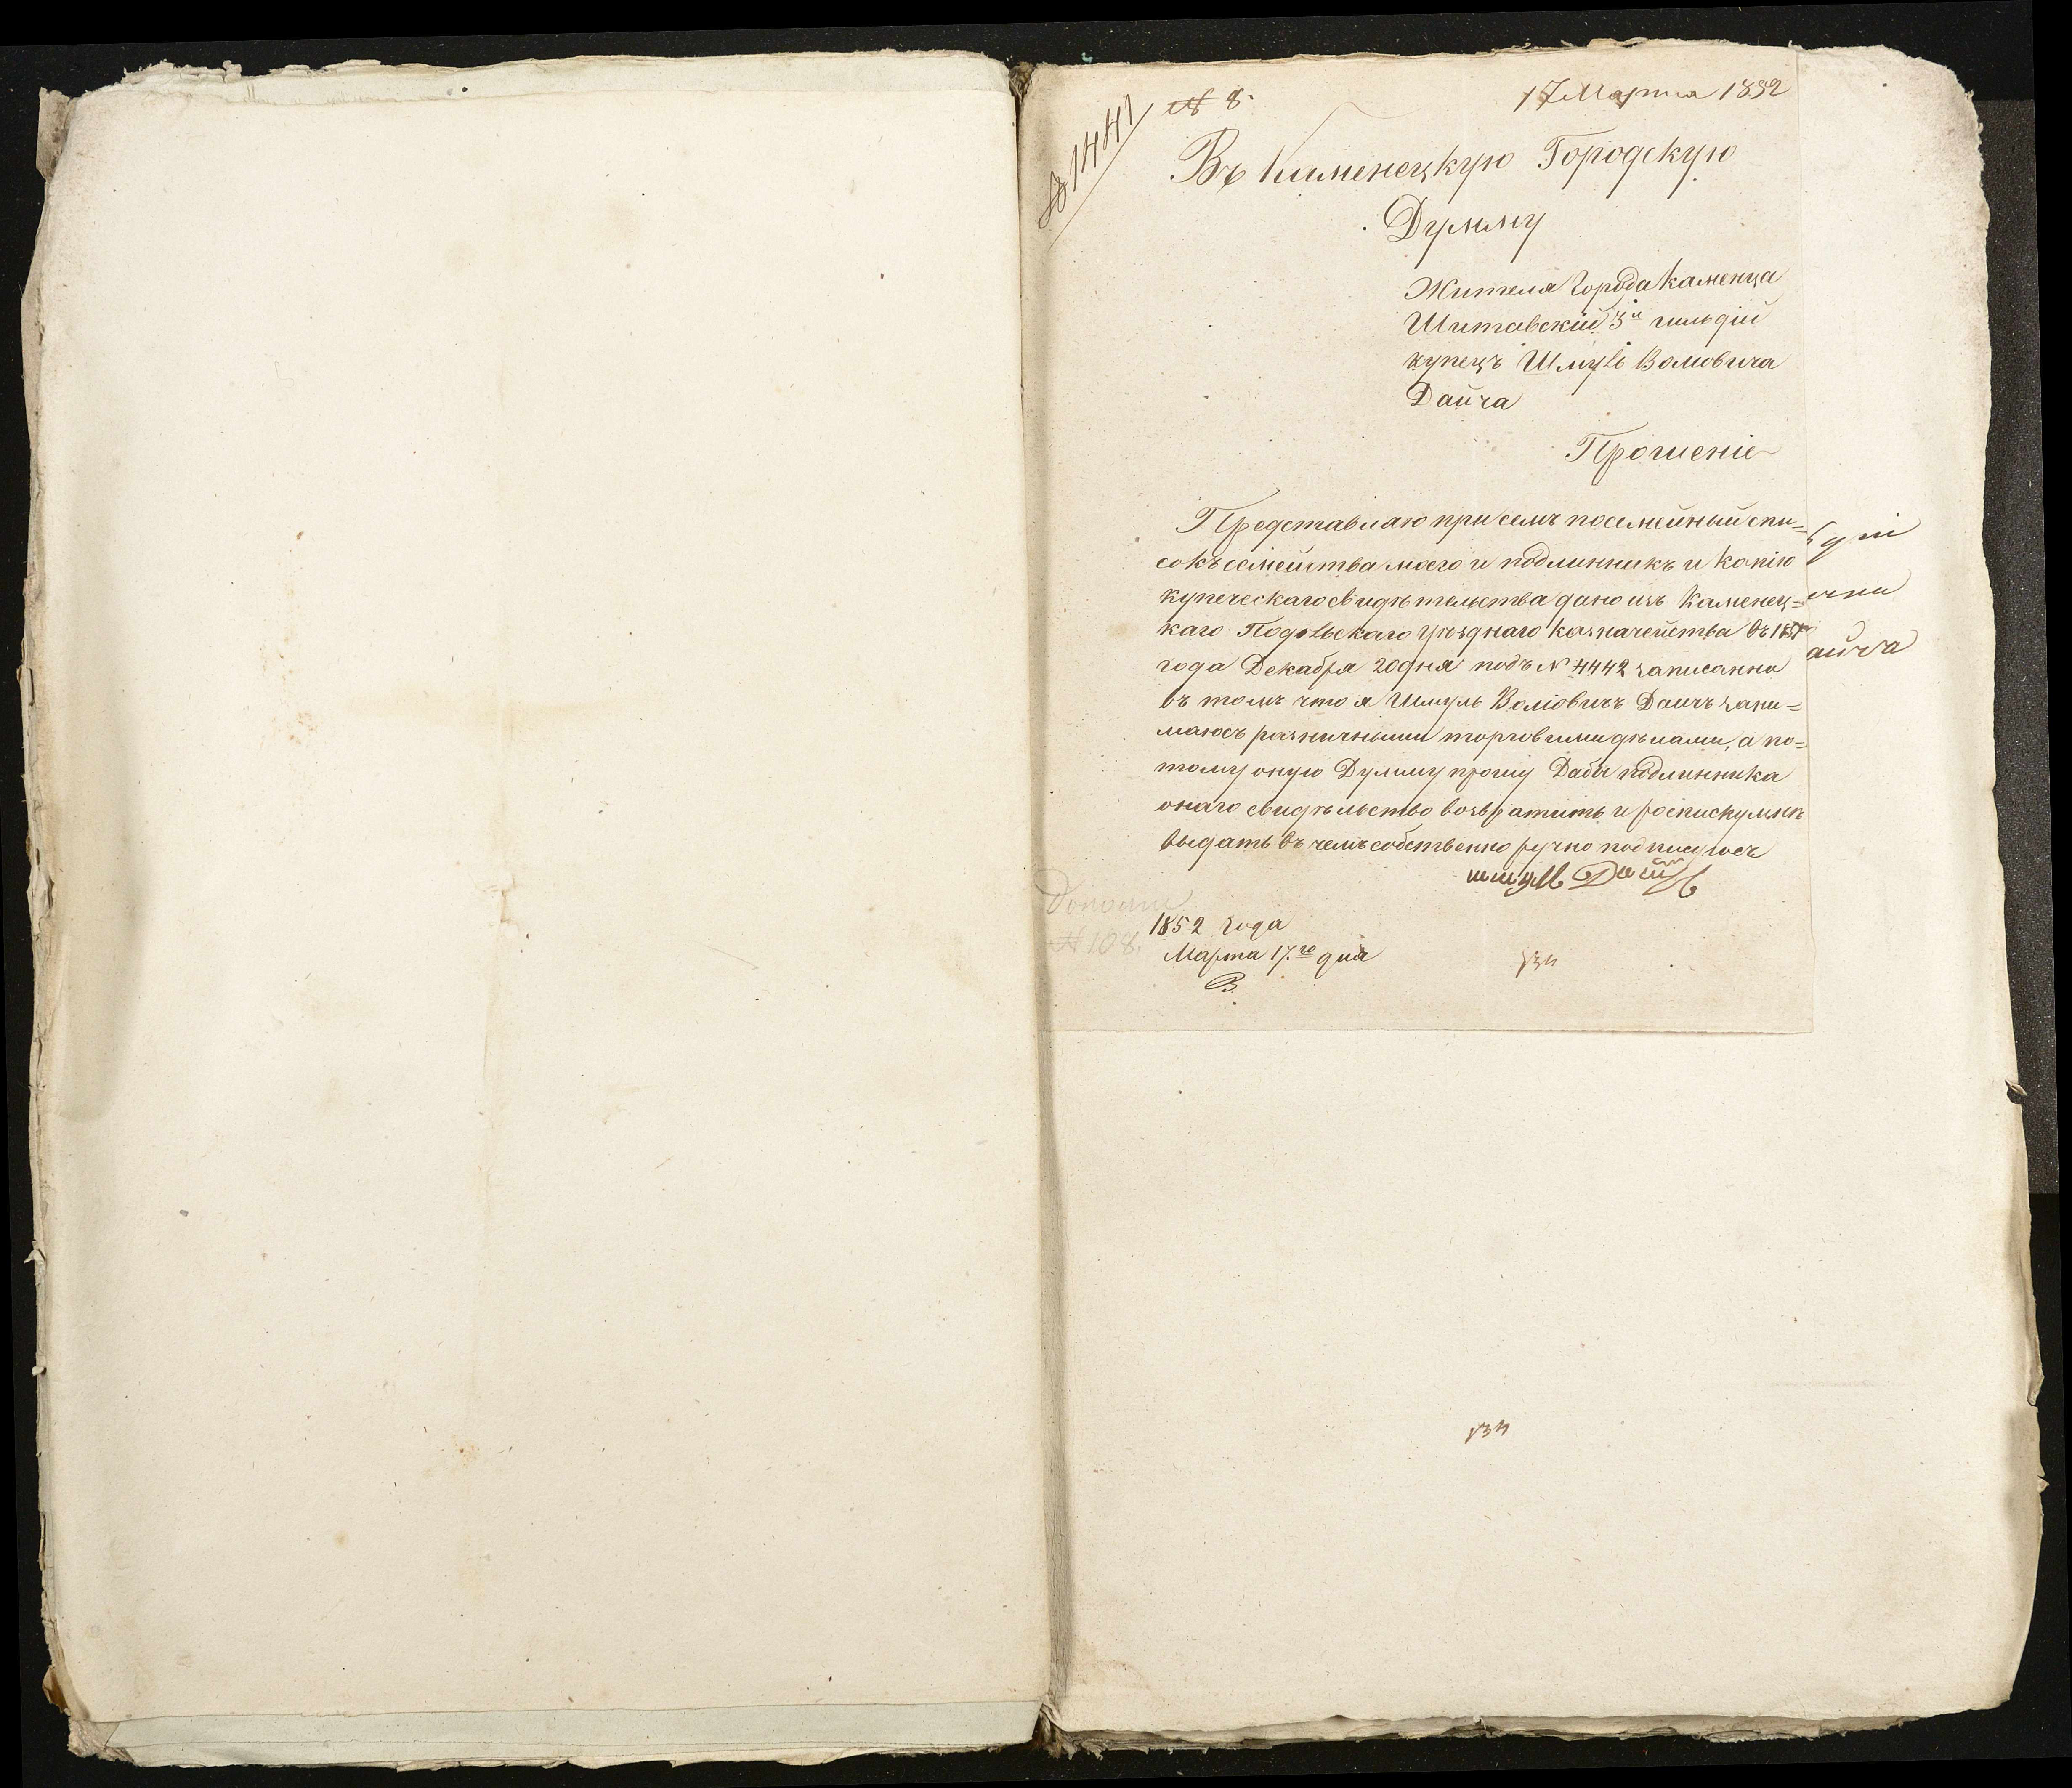 № 1441
№ 8.
17 Марта 1852
Въ Каменецкую Городскую
Думму
Жителя города Каменца
3й гильдіи
купецъ Шмуль Волковича
Дайча
Прошеніе
Представлаю при семъ посемейный спи=
сокъ семейства моего и подлинникъ и копію
купеческаго свидѣтельства дано изъ Каменец=
каго Подольскаго уѣзднаго казначейства въ 1851
года Декабря 20 дня подъ № 4442 записанно
въ томъ что я Шмуль Воліовичъ Даичъ зани=
маюсъ разничными торговими дѣлами, а по=
тому оную Думму прошу Дабы подлинника
онаго свидѣльство возвратить и роспискумнѣ
выдать въ чемъ собственно ручно подписуюсъ
шмуль
1852 года
Марта 17.го дня
№ 108.
134
айча
134